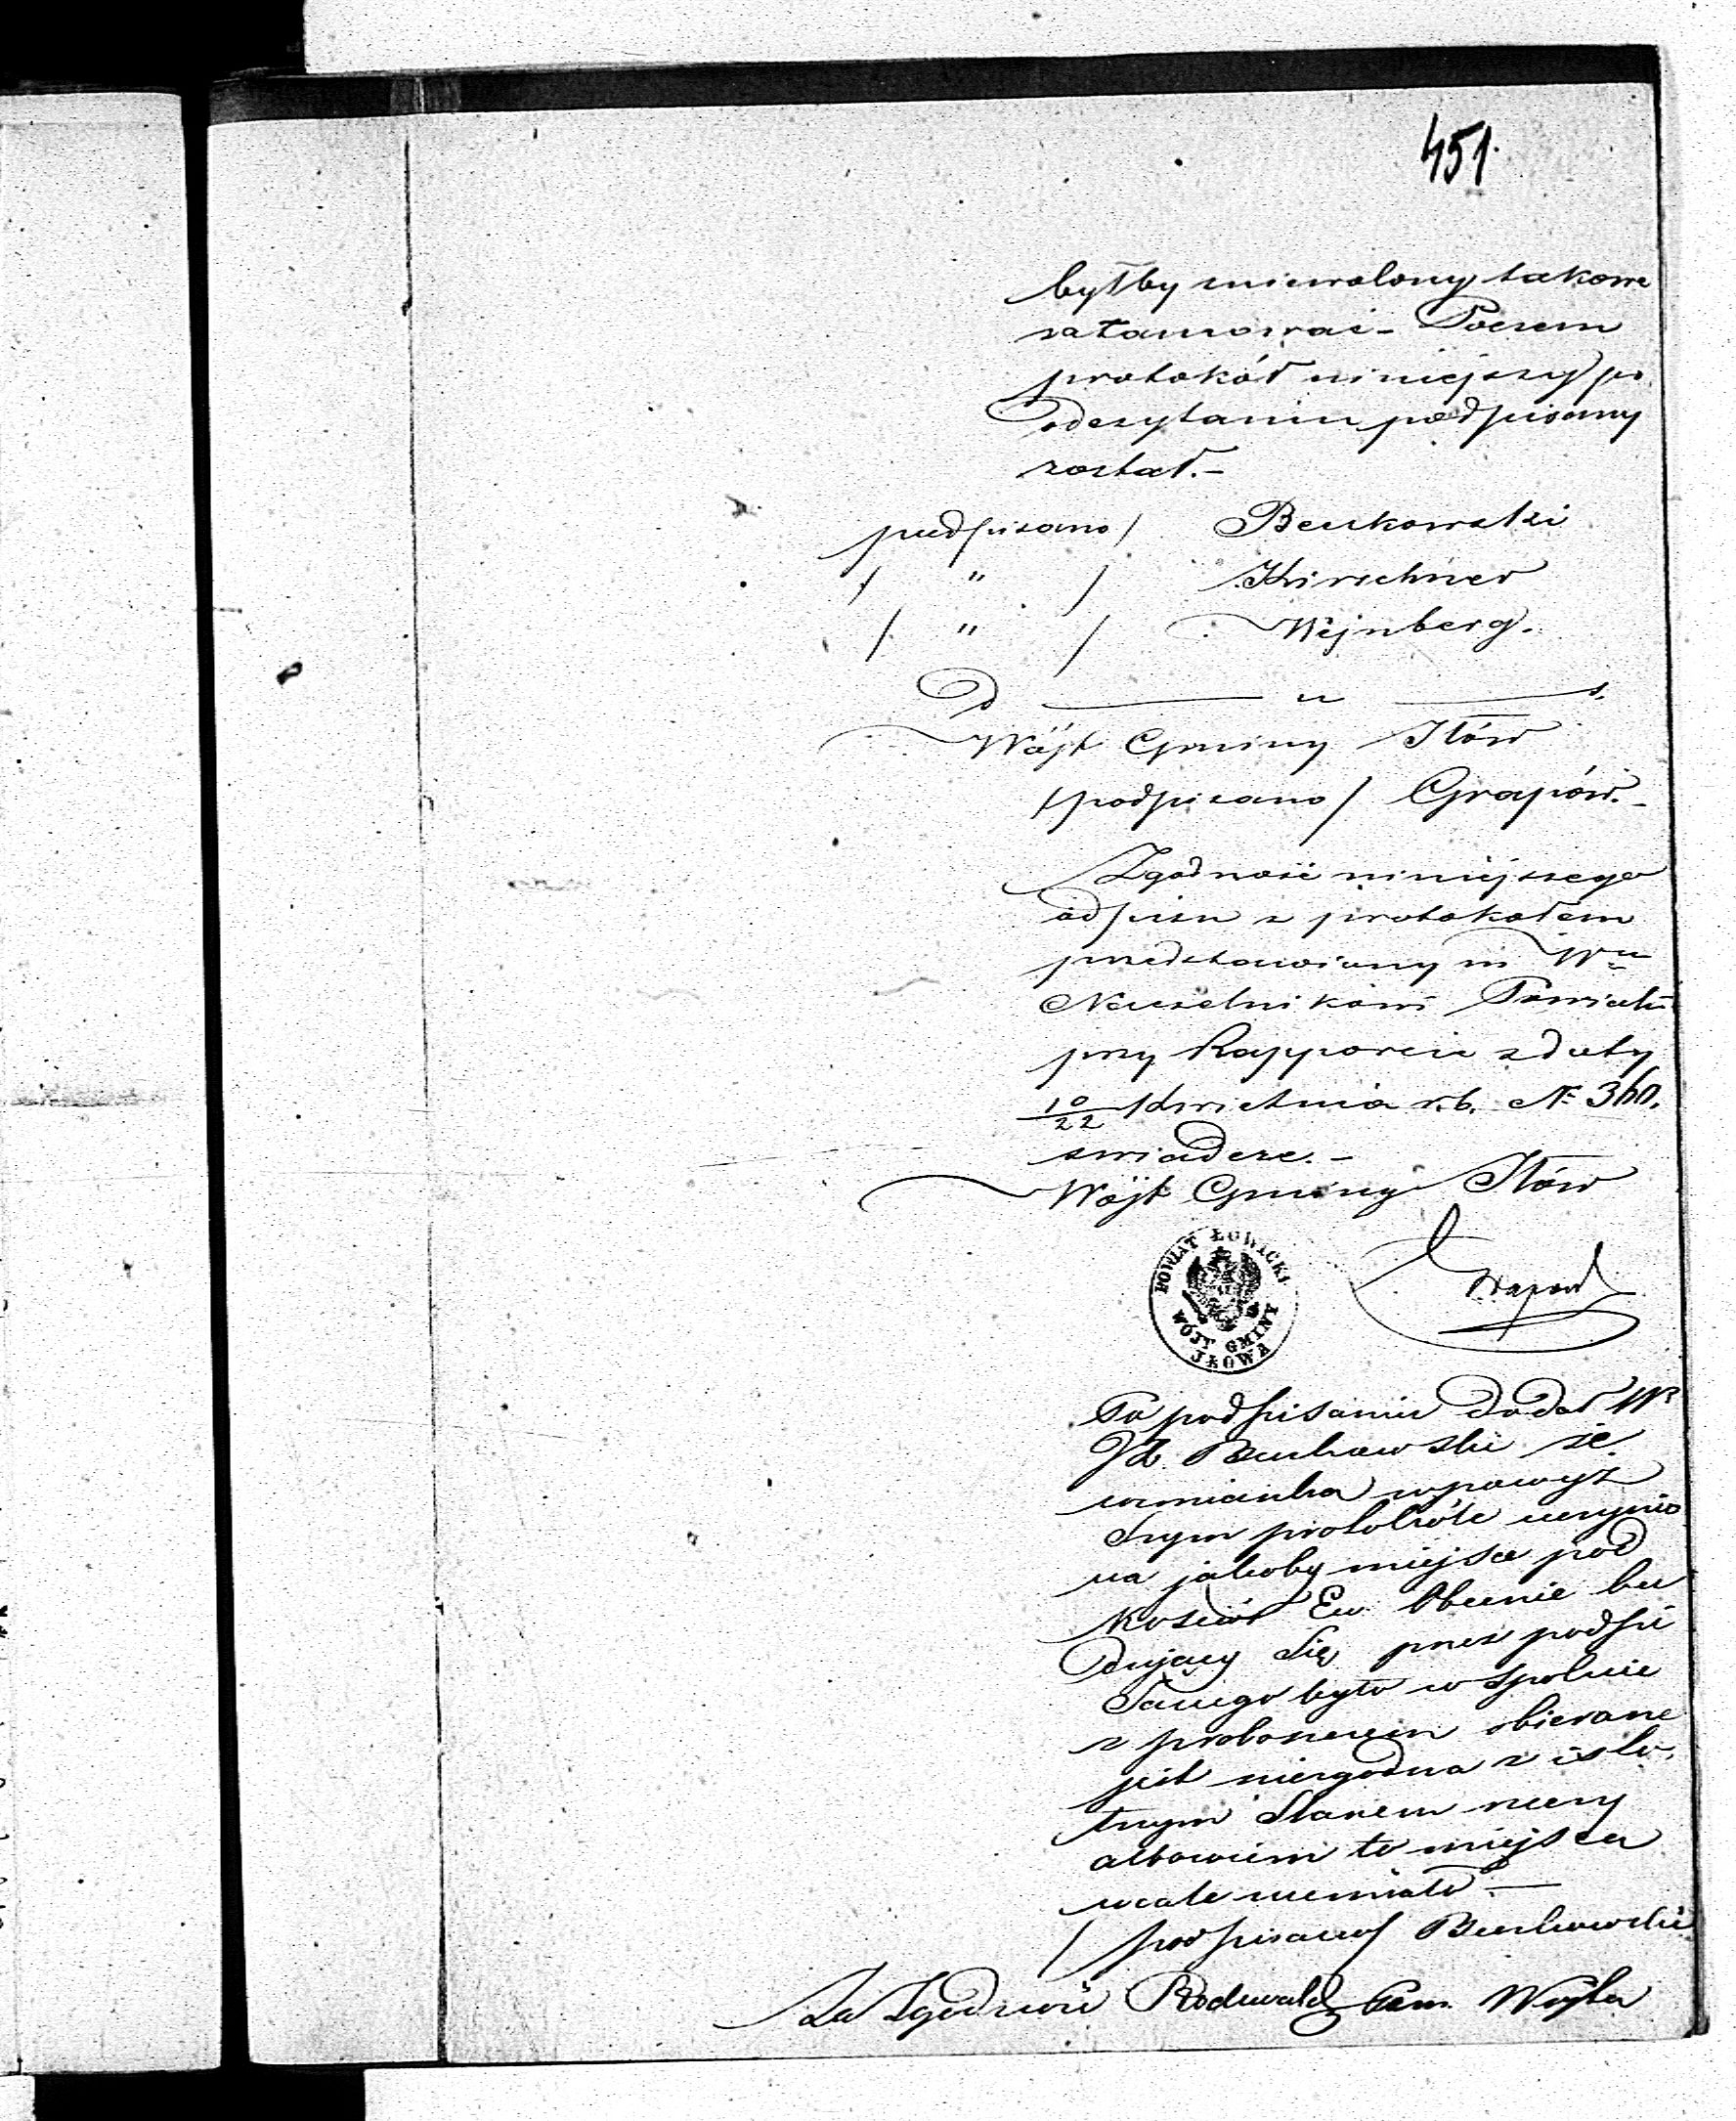 451.
byłby zniewolony takowe
zatamować - Poczem
protokół niniejszy po
odczytaniu podpisany
został. -
podpisano / Benkowski
/ " / Kirschner
/ " / Wejnberg.
D u s.
Wójt Gminy Iłów
/podpisano/ Grapów. -
Zgodność niniejszego
odpisu z protokołem
przedstawionym Wu
Naczelnikowi Powiatu
przy Rapporcie z daty
10/22 Kwietnia r.b. № 360.
swiadcze. -
Wójt Gminy Iłów
POWIAT ŁOWICKI
WÓJT GMINY
JŁOWA
Grapow
Po podpisaniu dodał W
Benkowski że
wzmianka w powyż
szym protokóle uczynio
na jakoby miejsce pod
Kosciół Ew. Obecnie bu
dujący się przez podpi
sanego było wspolnie
z proboszczem obierane
jest niezgodna z isto
tnym Stanem rzeczy
albowiem to miejsca
wcale niemiało. —
/ podpisano / Benkowski
Za Zgodność Rodewald Wójta